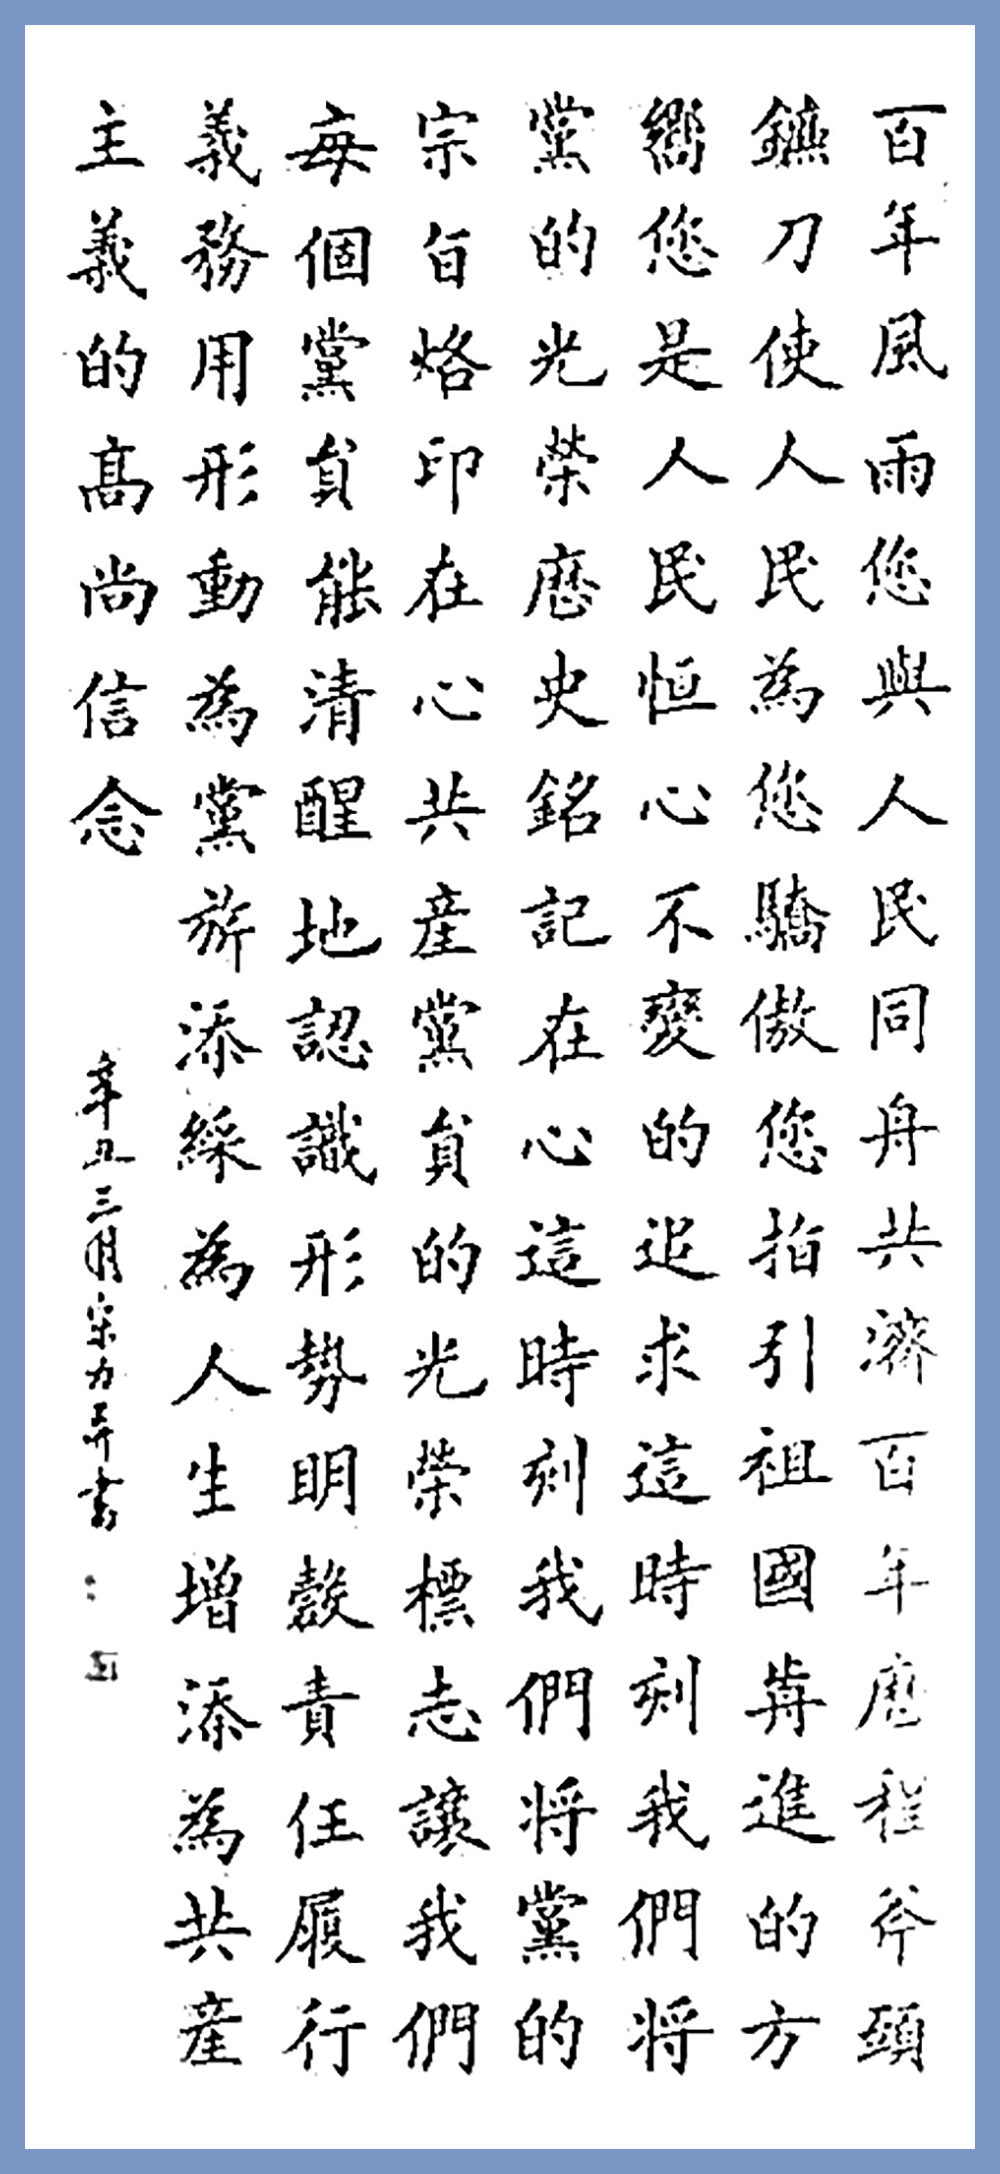 百年風雨您與人民同舟共濟百年歷程斧頭
鐮刀使人民為您驕傲您指引祖國前進的方
嚮您是人民恒心不變的追求這時刻我們将
黨的光榮歷史銘記在心這時刻我們将黨的
宗旨烙印在心共産黨員的光榮標志讓我們
每個黨員能清醒地認識形勢明責任履行
義務用形動為黨旂添綵為人生增添為共産
主義的髙尚信念
辛丑三月宋力書